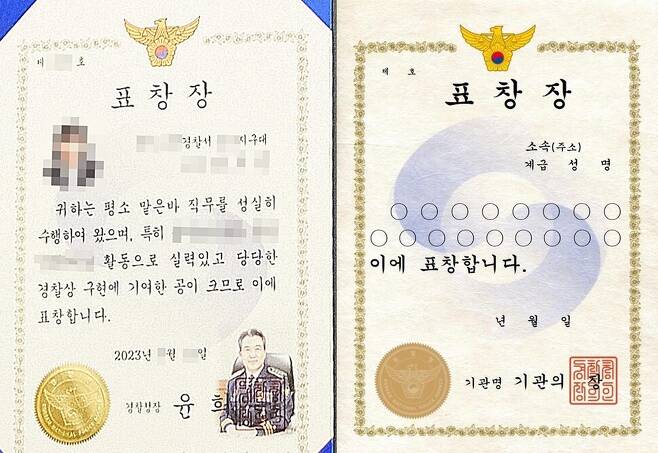 제 호
표창장
경찰서 지구대
귀하는 평소 맡은바 직무를 성실히
수행하여 왔으며, 특히
활동으로 실력있고 당당한
경찰상 구현에 기여한 공이 크므로 이에
표창합니다.
2023년 월 일
경찰청장 윤희
제 호
표창장
소속(주소)
계급 성명
○○○○○○○○
○○○○○○○○○
이에 표창합니다.
년 월 일
기관명 기관의 장